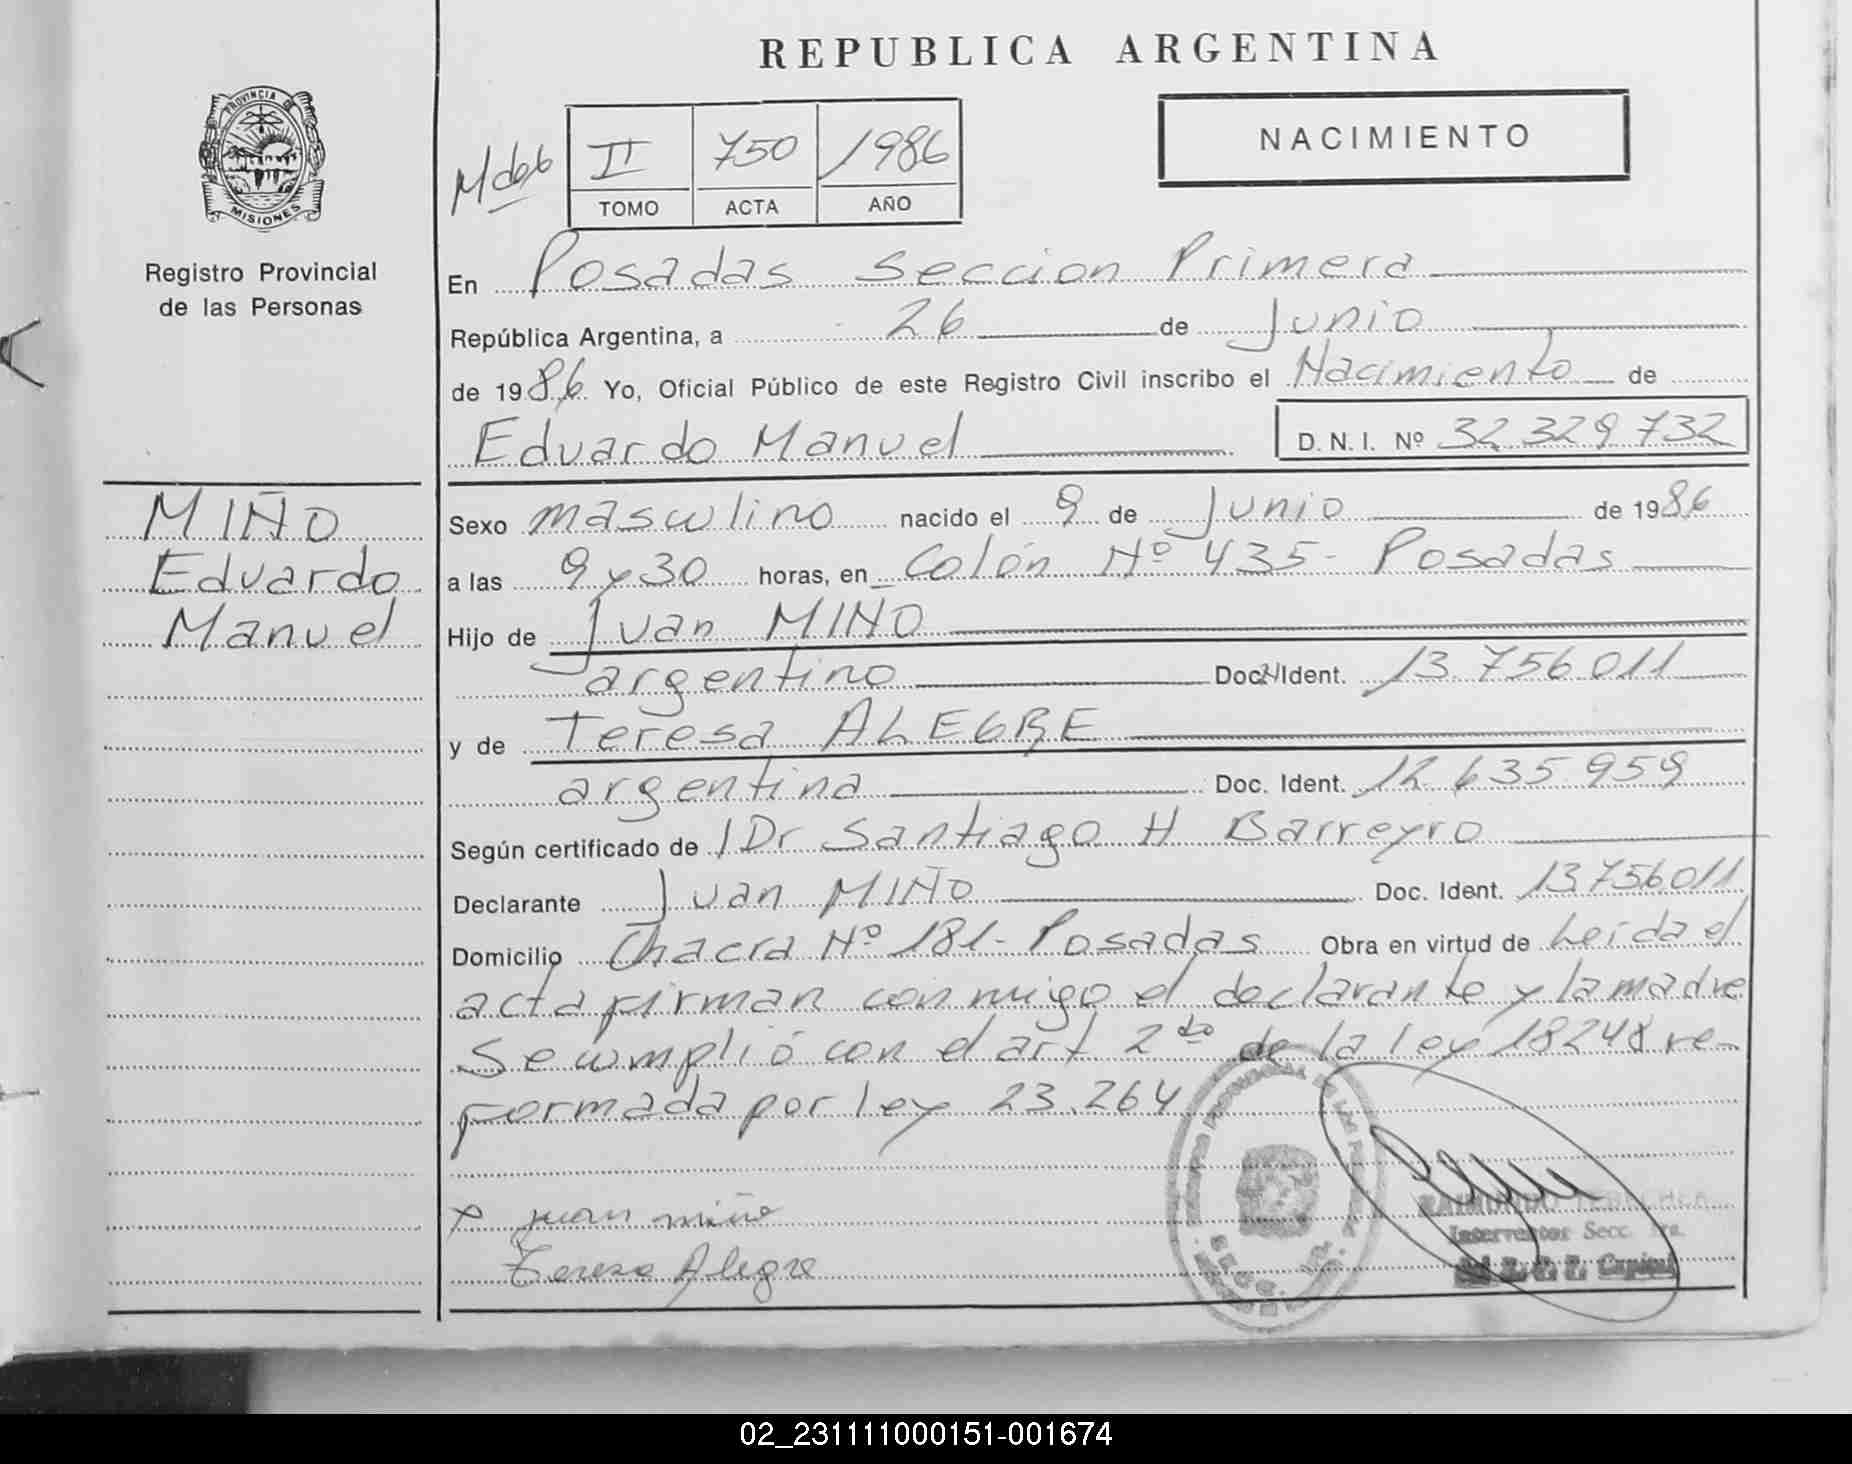 REPUBLICA ARGENTINA
PROVINCIA DE
MISIONES
Registro Provincial
de las Personas
II 750 1986
TOMO ACTA AÑO
NACIMIENTO
En Posadas Seccion Primera
República Argentina, a 26 de Junio
de 1986 Yo, Oficial Público de este Registro Civil inscribo el Nacimiento de
Eduardo Manuel D.N.I. Nº 32 329 732
MIÑO
Eduardo
Manuel
Sexo masculino nacido el 9 de Junio de 1986
a las 9 y 30 horas, en Colón Nº 435- Posadas
Hijo de Juan MIÑO
argentino Doc. Ident. 13 756 011
y de Teresa ALEGRE
argentina Doc. Ident. 12 635 959
Según certificado de Dr Santiago H Barreyro
Declarante Juan MIÑO Doc. Ident. 13756011
Domicilio Chacra Nº 181- Posadas Obra en virtud de Leida el
acta firman conmigo el declarante y la madre
Se cumplió con el art 2do de la ley 18248 re-
formada por ley 23.264
x juan miño
Teresa Alegre
RAIMUNDO
Interventor Secc. 1ra.
Capital
02_231111000151-001674